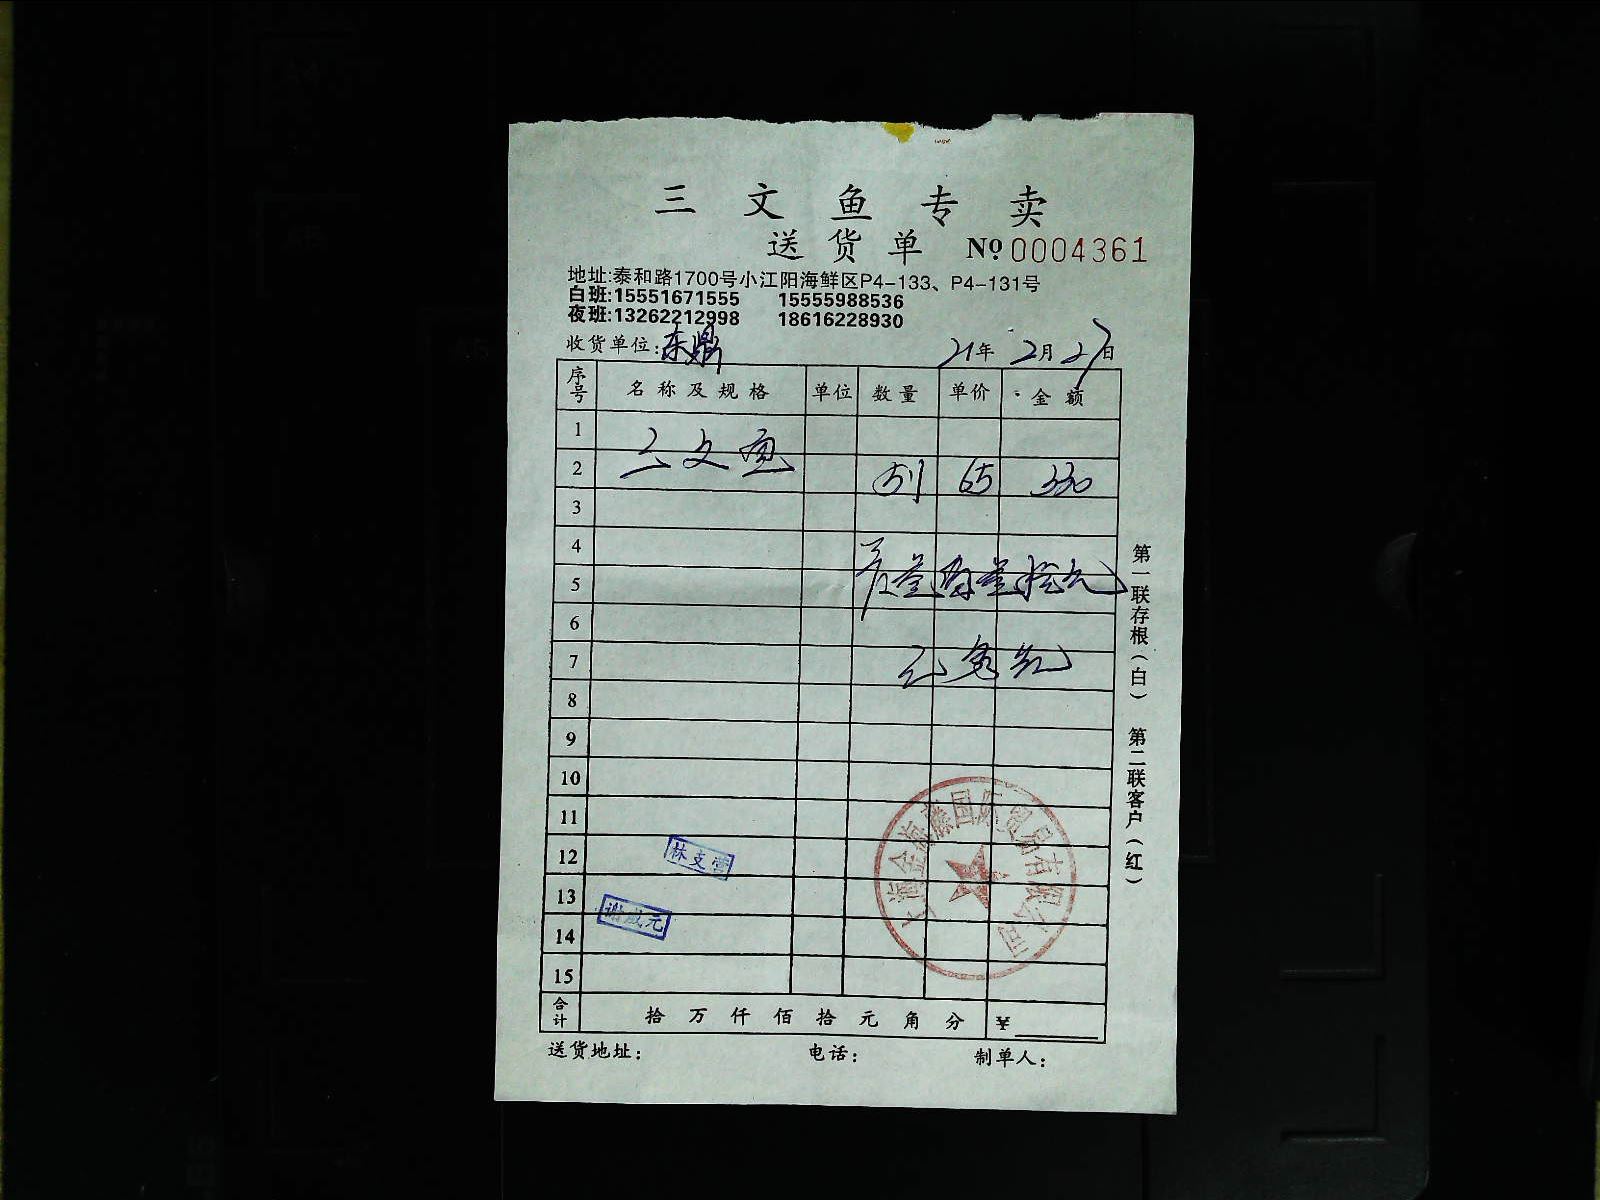 三文鱼专卖
送货单 Nº 0004361
地址:泰和路1700号小江阳海鲜区P4-133、P4-131号
白班:15551671555 15555988536
夜班:13262212998 18616228930
收货单位:东鼎 21年2月27日
序号 名称及规格 单位 数量 单价 金额
1
三文鱼
2 51 65 330
3
4
5
6
7
8
9
10
11
12 林支营
13
谢成元
14
15
合计 拾万仟佰拾元角分 ¥
送货地址: 电话: 制单人:
第一联存根(白) 第二联客户(红)